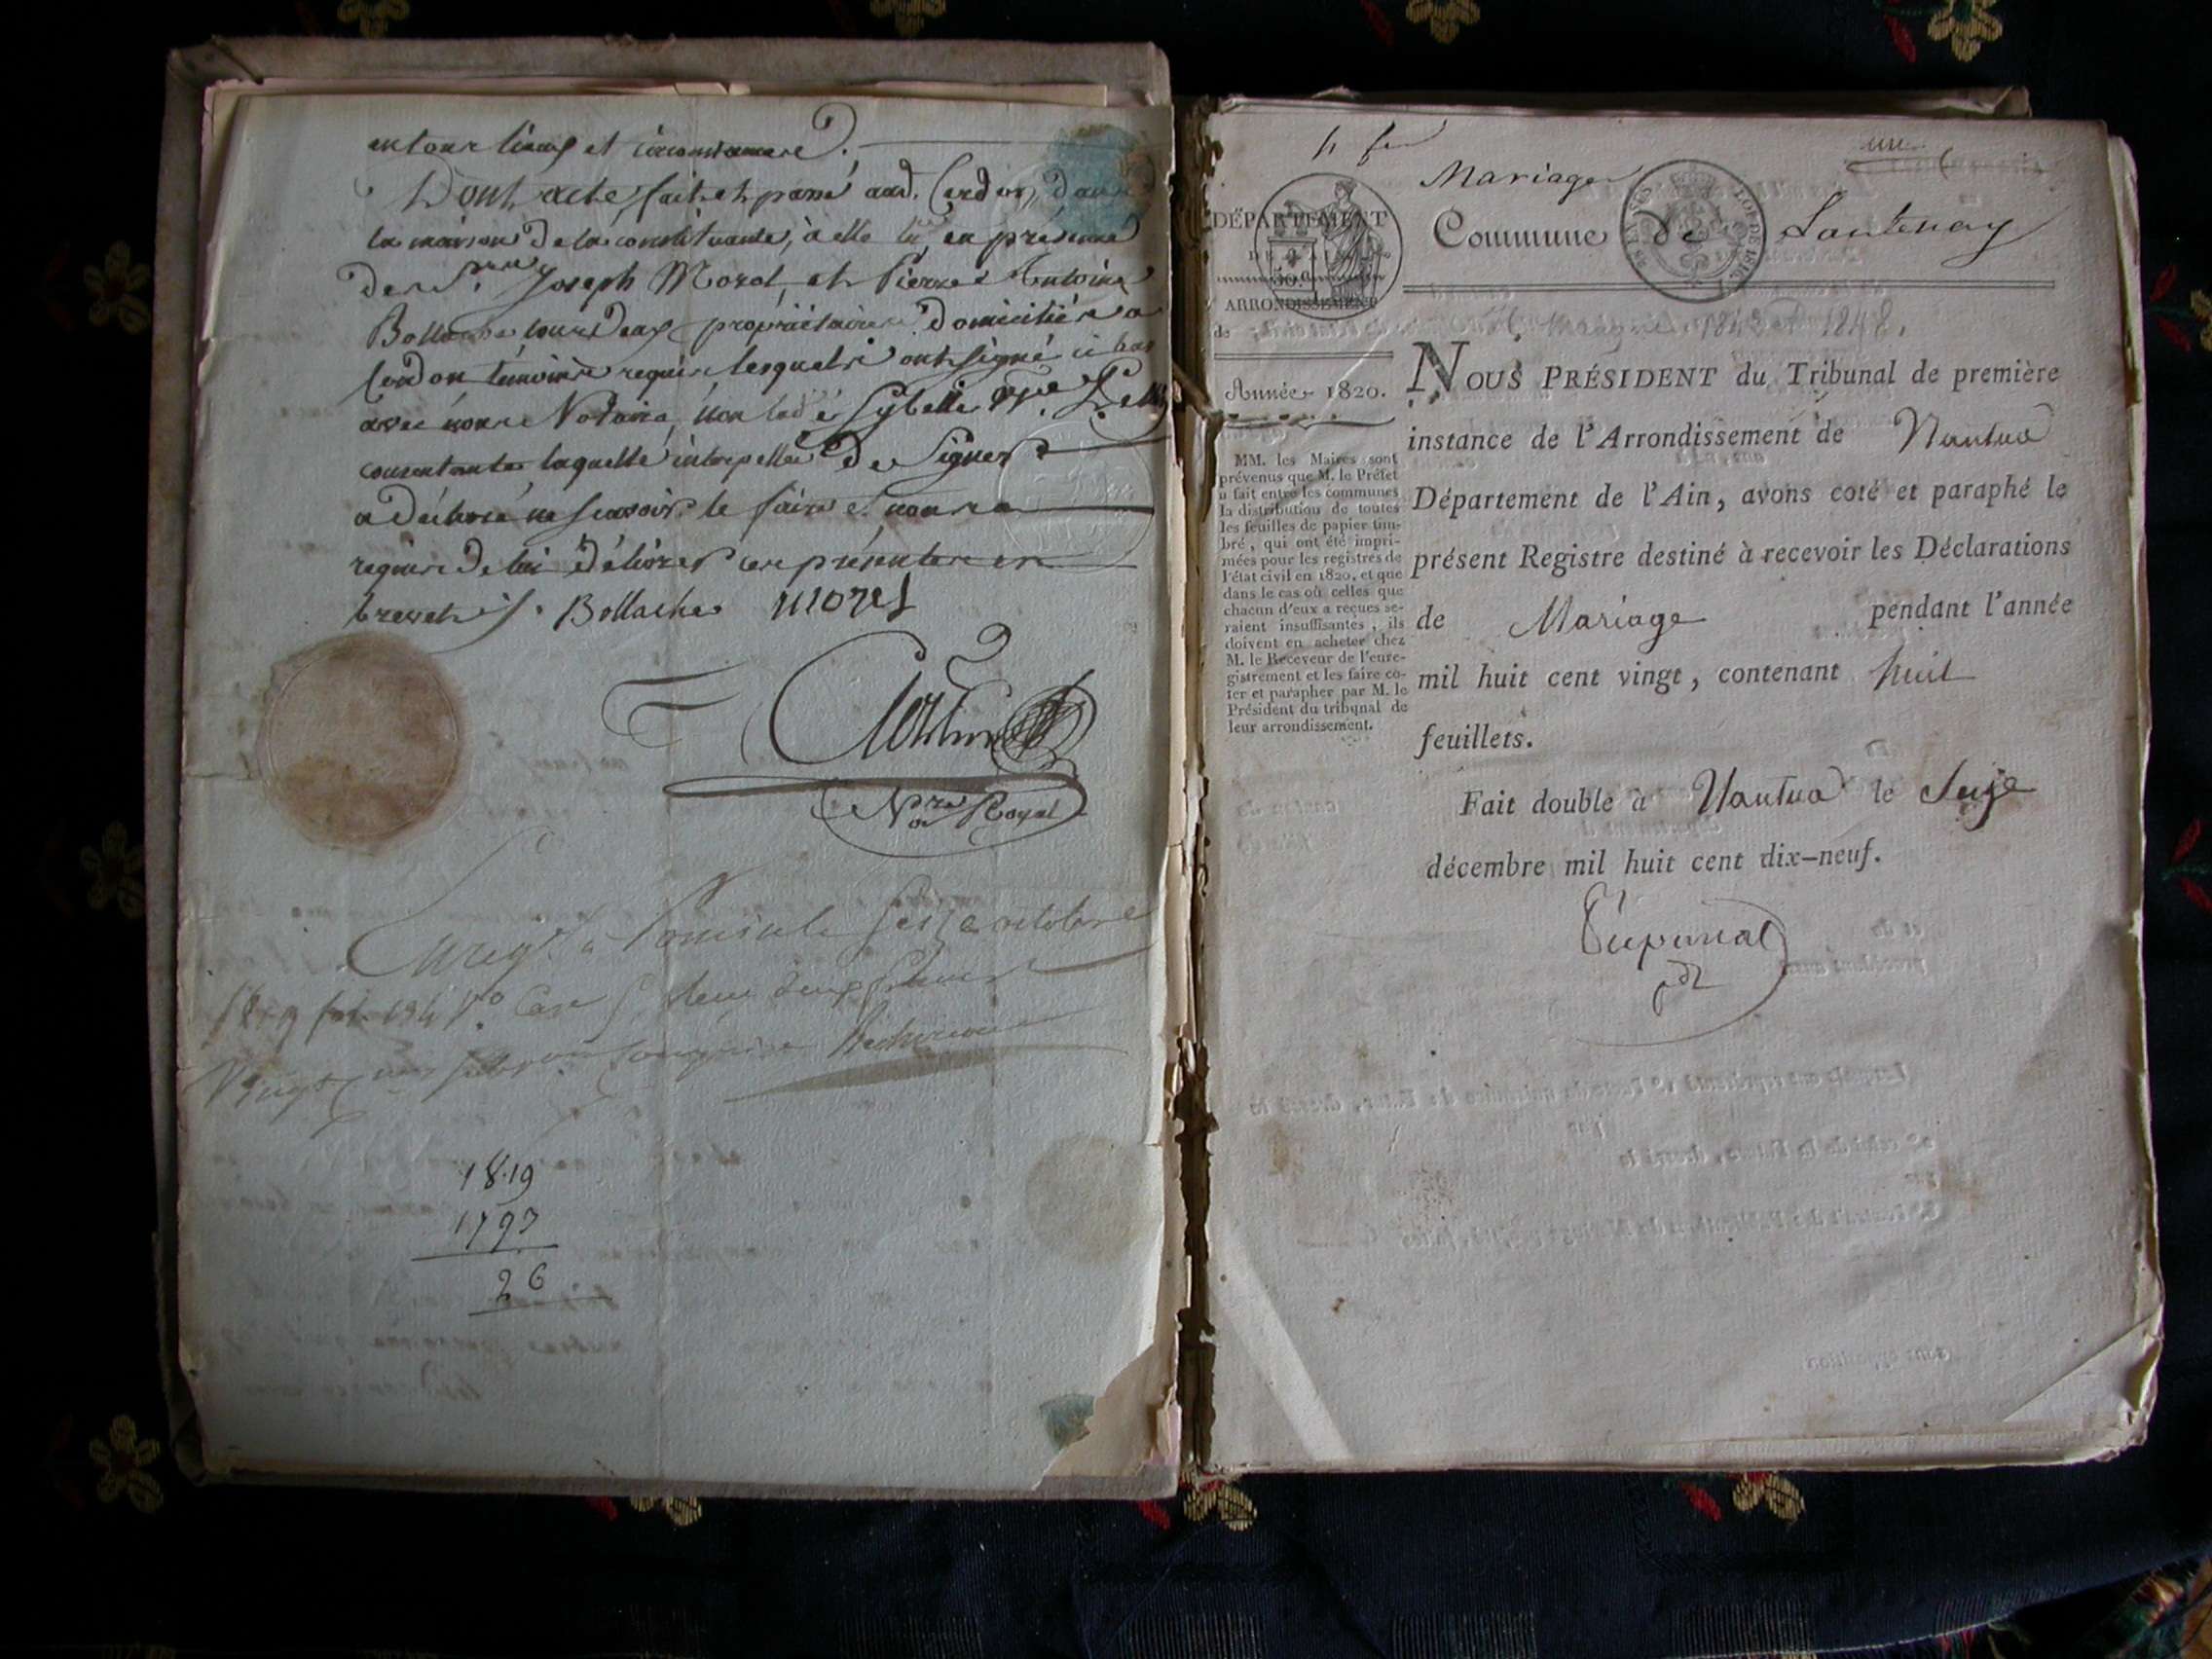 en tous lieux et circonstances.
Dont acte, fait et passé aud. Cerdon, dans
la maison de la constituante, à elle lu, en présence
de Srs. Joseph Morel et Pierre Antoine
Bollache tous deux propriétaires domiciliés a
Cerdon témoins requis lesquels ont signé ci bas
avec nous Notaire, non lad. Sybelle
consentante laquelle interpellée de Signer
a déclaré ne sçavoir le faire et nous a
requis de lui délivrer ces présentes en
brevet. Bollache morel
Nre Royal
Enregt. à Poncin le seize octobre
1819 fol. 194 Vo. Case 5, Reçu deux francs
Vingt
1819
1793
26
4 fer
Mariage
une
DÉPARTEMENT
DE L'AIN.
50.c
ARRONDISSEMENT
de
Commune de Lantenay
Année 1820.
Mariages 1843 et 1848.
MM. les Maires sont
prévenus que M. le Préfet
a fait entre les communes
la distribution de toutes
les feuilles de papier tim-
bré, qui ont été impri-
mées pour les registres de
l'état civil en 1820, et que
dans le cas où celles que
chacun d'eux a reçues se-
raient insuffisantes, ils
doivent en acheter chez
M. le Receveur de l'enre-
gistrement et les faire co-
ter et parapher par M. le
Président du tribunal de
leur arrondissement.
NOUS PRÉSIDENT du Tribunal de première
instance de l'Arrondissement de Nantua
Département de l'Ain, avons coté et paraphé le
présent Registre destiné à recevoir les Déclarations
de Mariage pendant l'année
mil huit cent vingt, contenant huit
feuillets.
Fait double à Nantua le Seize
décembre mil huit cent dix-neuf.
pdt